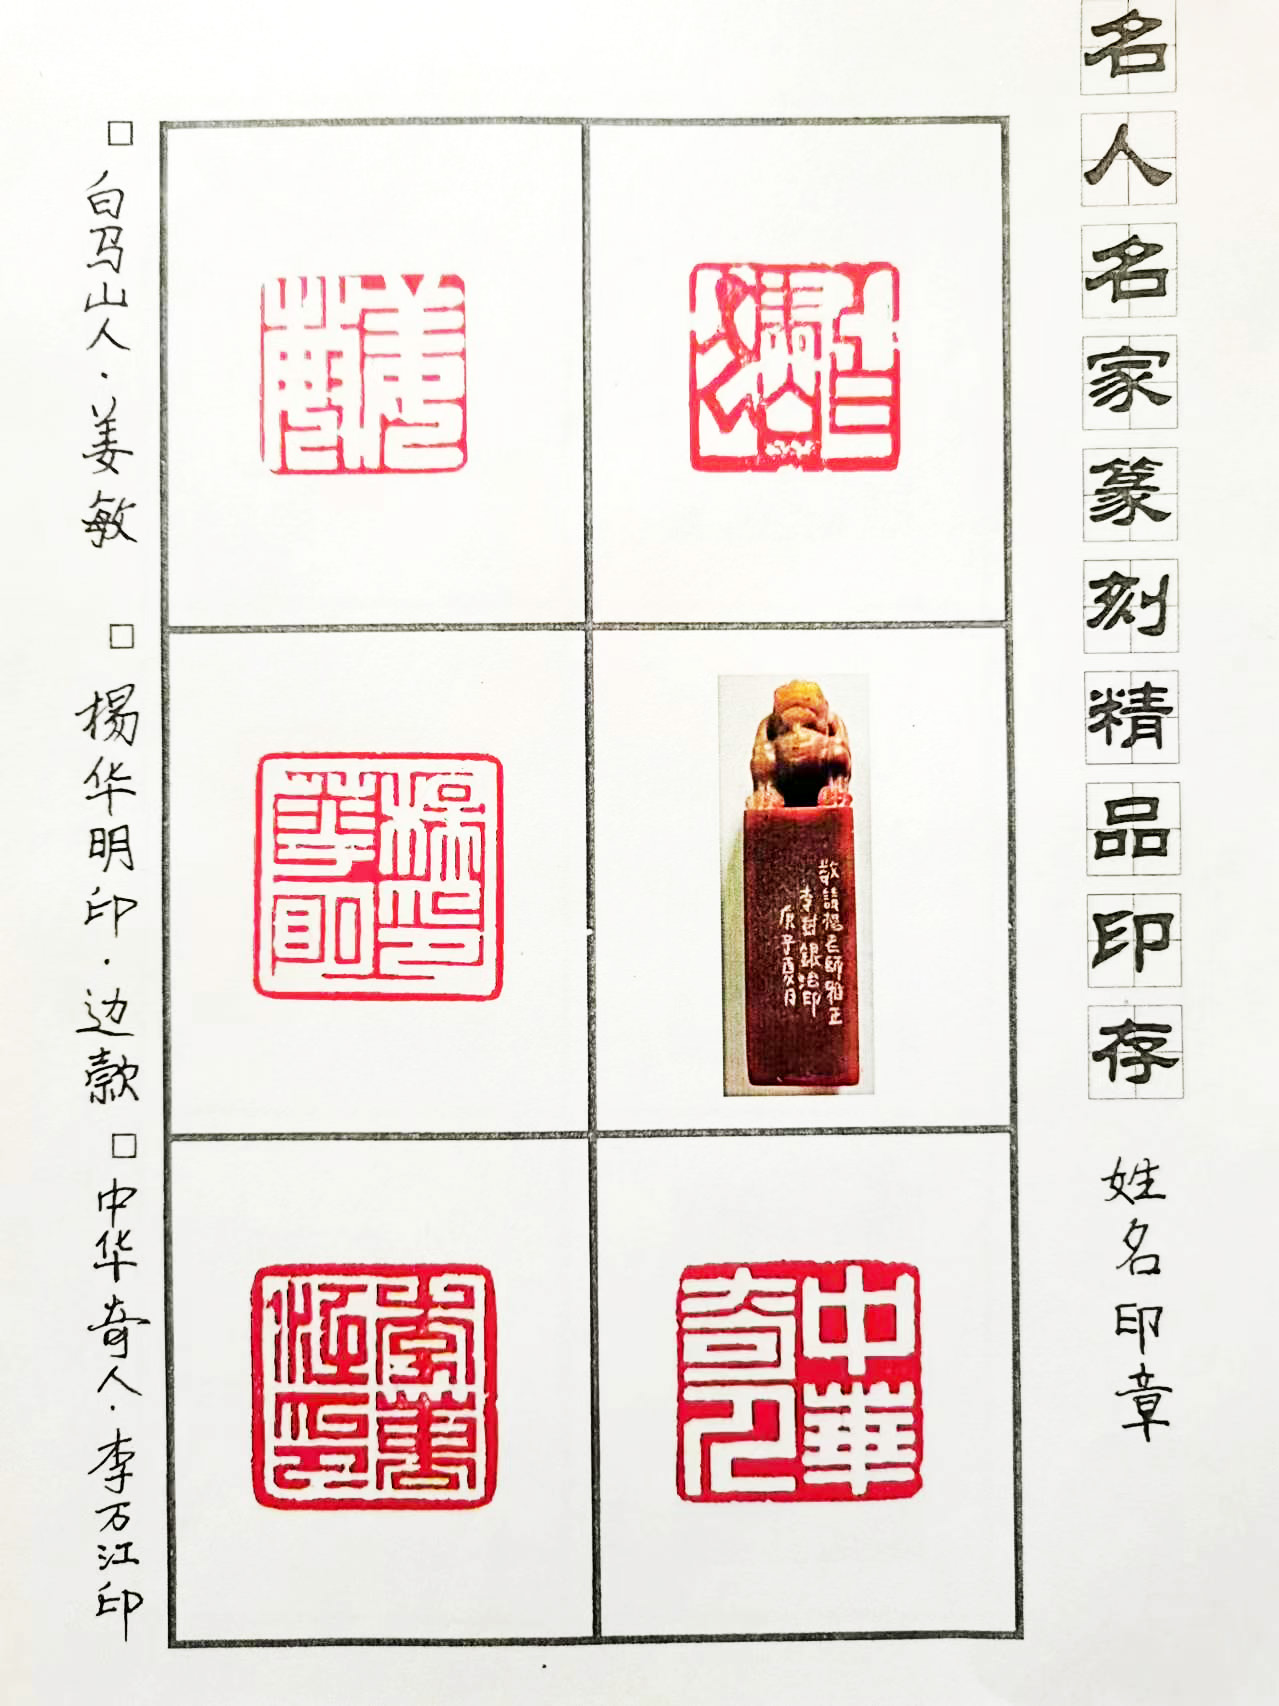 名人名家篆刻精品印存
姓名印章
敬請楊老師雅正
李封銀治印
庚子酉月
中華奇人
楊華明印
李萬江印
□ 白马山人·姜敏
□ 楊华明印·边款
□ 中华奇人·李万江印